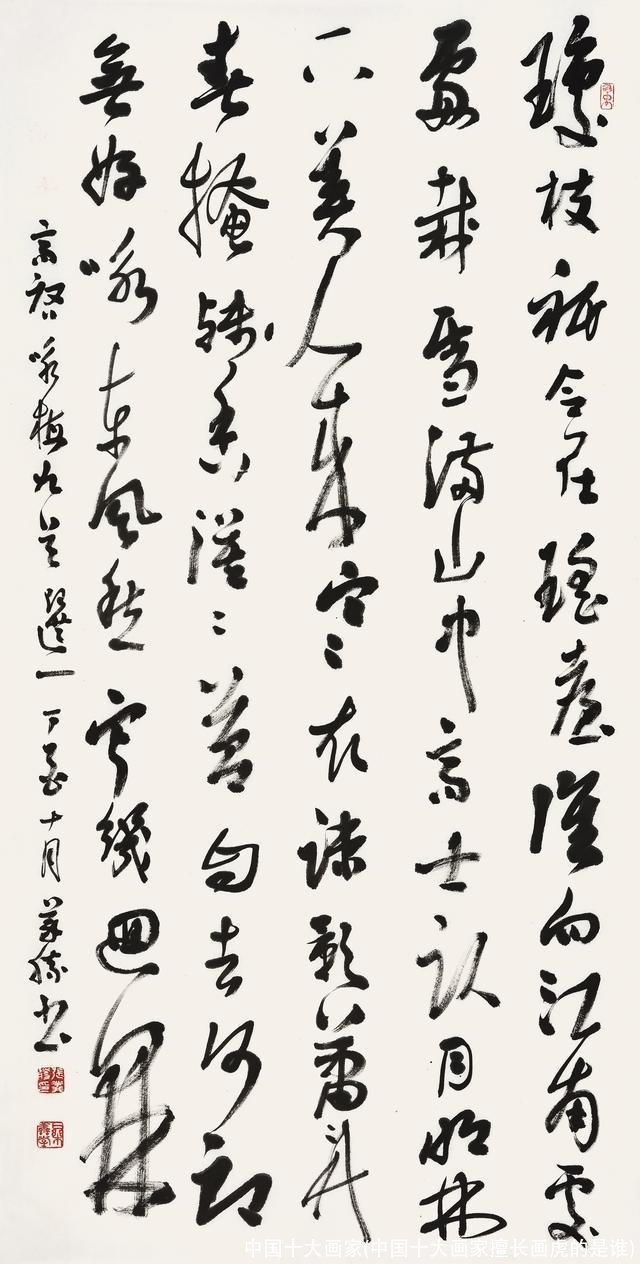 瓊枝秖合在瑤臺誰向江南處
處栽雪滿山中高士臥月明林
下美人來寒依疎影蕭〻竹
春掩殘香漠〻苔自去何郎
無好咏東風愁寂幾迴開
高啓咏梅九首選一丁酉十月书
中国十大画家(中国十大画家擅长画虎的是谁)